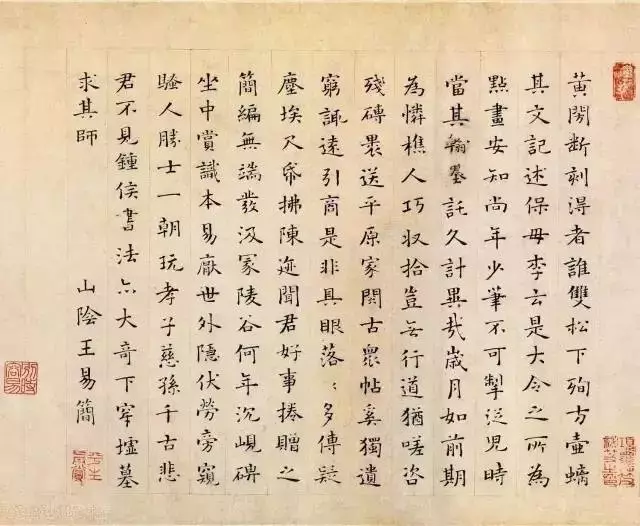 黃閍断刻得者誰雙松下殉方壺螭
其文記述保母李云是大令之所為
點畫安知尚年少筆不可掣従兒時
當其翰墨託久計異哉歲月如前期
為憐樵人巧収拾豈無行道猶嗟咨
殘磚裹送平原家閱古衆帖奚獨遺
窮諏遠引商是非具眼落〻多傳疑
塵埃尺帋拂陳迹聞君好事捲贈之
簡編無端發汲冢陵谷何年沉峴碑
坐中賞識本易厭世外隱伏勞旁窺
騷人勝士一朝玩孝子慈孫千古悲
君不見鍾侯書法亦大奇下穿壚墓
求其師
山陰王易簡